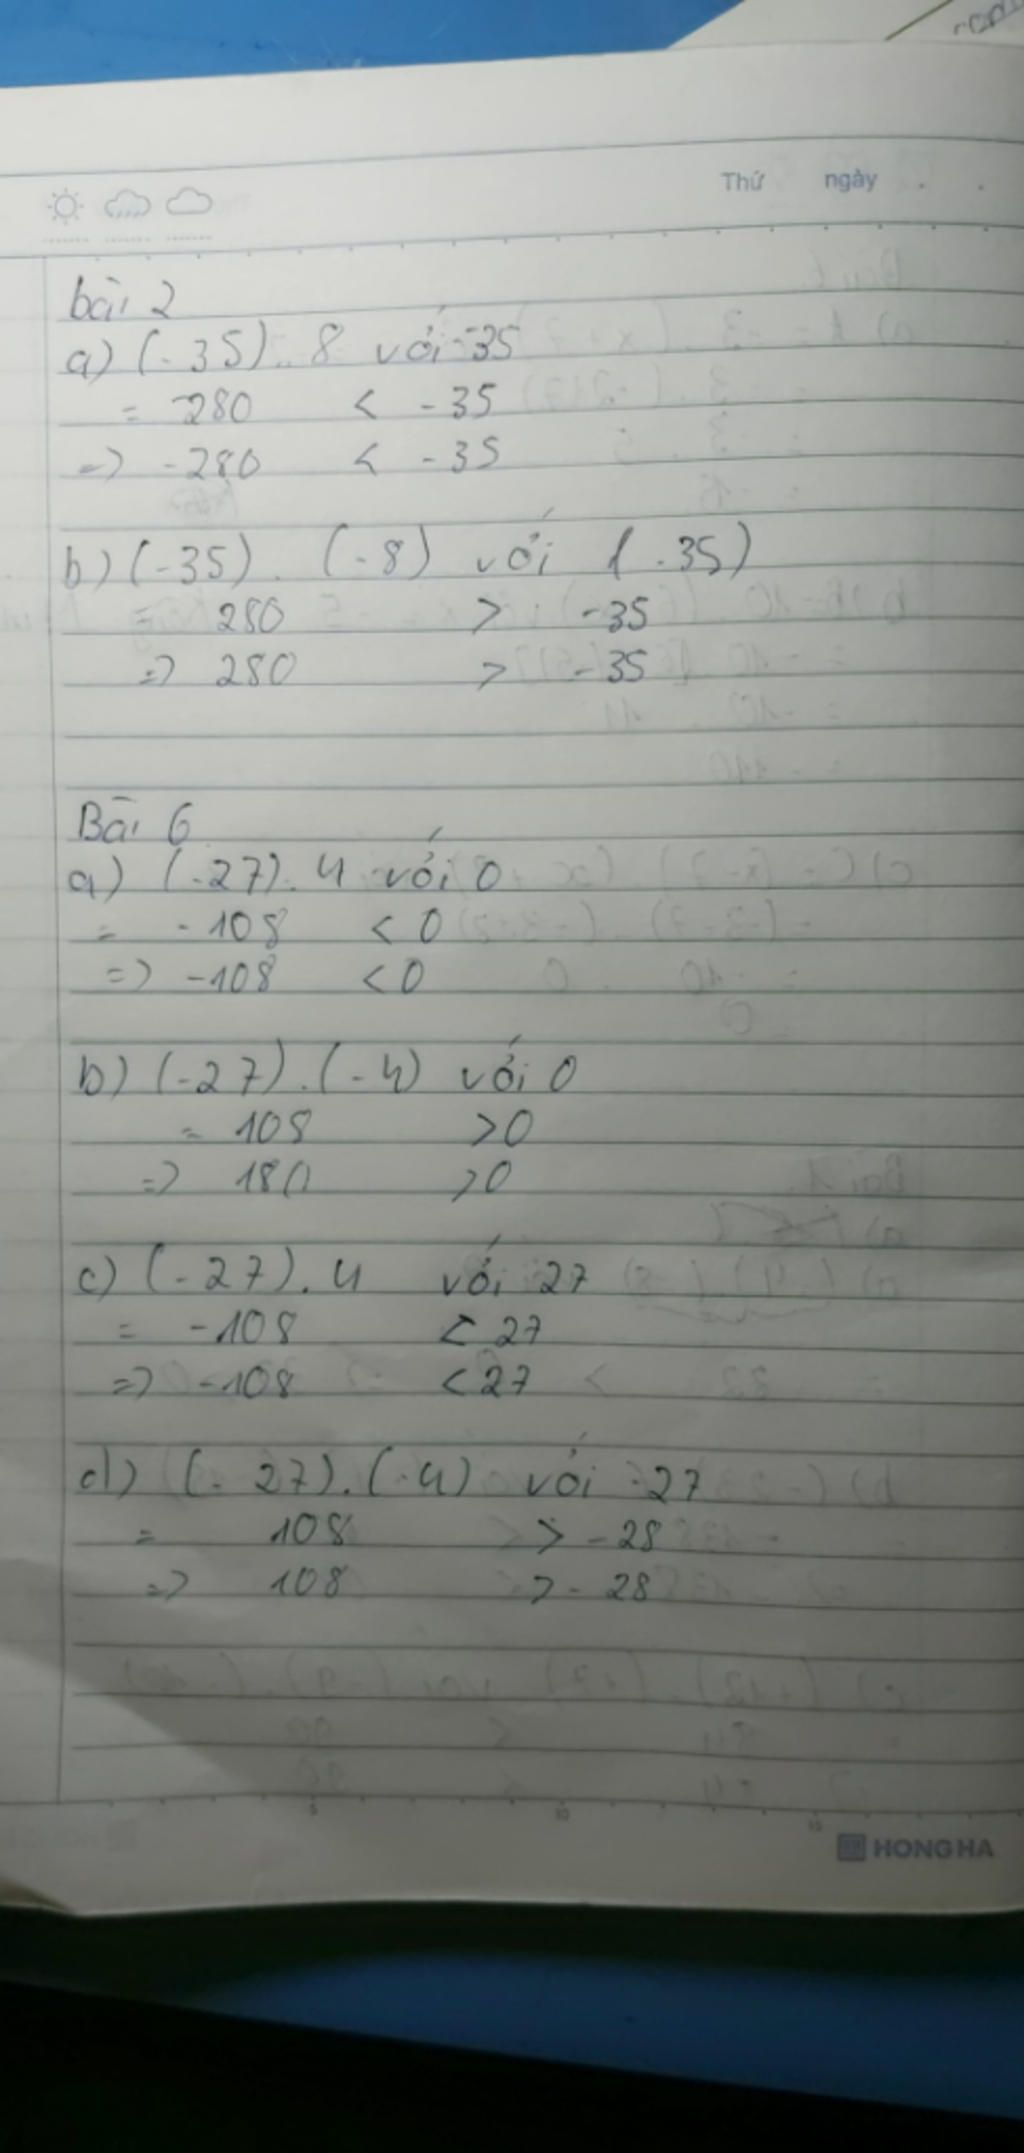 Thứ ngày
bài 2
a) (-35) . 8 với -35
= -280 < -35
=> -280 < -35
b) (-35) . (-8) với (-35)
= 280 > -35
=> 280 > -35
Bài 6
a) (-27) . 4 với 0
= -108 < 0
=> -108 < 0
b) (-27) . (-4) với 0
= 108 > 0
=> 180 > 0
c) (-27) . 4 với 27
= -108 < 27
=> -108 < 27
d) (-27) . (-4) với -27
= 108 > -28
=> 108 > -28
5 10 15
HONG HA